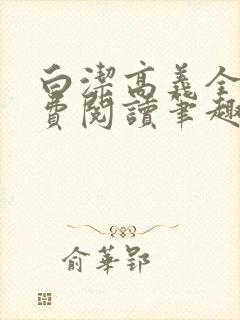 白潔高義全
費閱讀筆趣
俞華郢